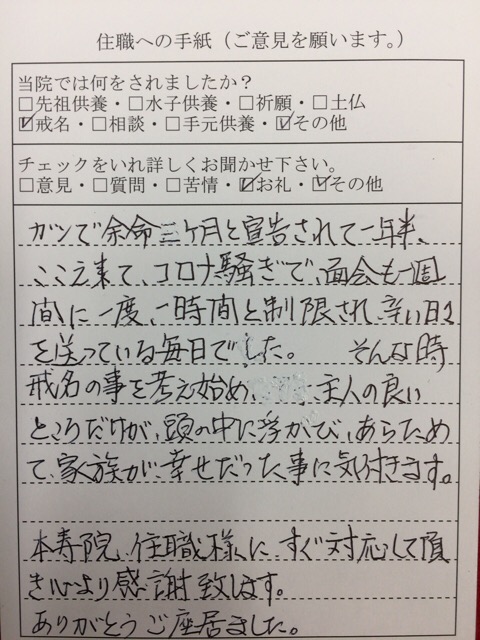 住職への手紙（ご意見を願います。）
当院では何をされましたか？
□先祖供養・□水子供養・□祈願・□土仏
☑戒名・□相談・□手元供養・☑その他
チェックをいれ詳しくお聞かせ下さい。
□意見・□質問・□苦情・☑お礼・☑その他
ガンで余命三ケ月と宣告されて一年半、
ここえ来て、コロナ騒ぎで、面会も一週
間に一度、一時間と制限され、辛い日々
を送っている毎日でした。　そんな時
戒名の事を考え始め、主人の良い
ところだけが、頭の中に浮かび、あらためて
て、家族が、幸せだった事に気付きます。
本寿院、住職様に、すぐ対応して頂
き心より感謝致します。
ありがとうご座居ました。